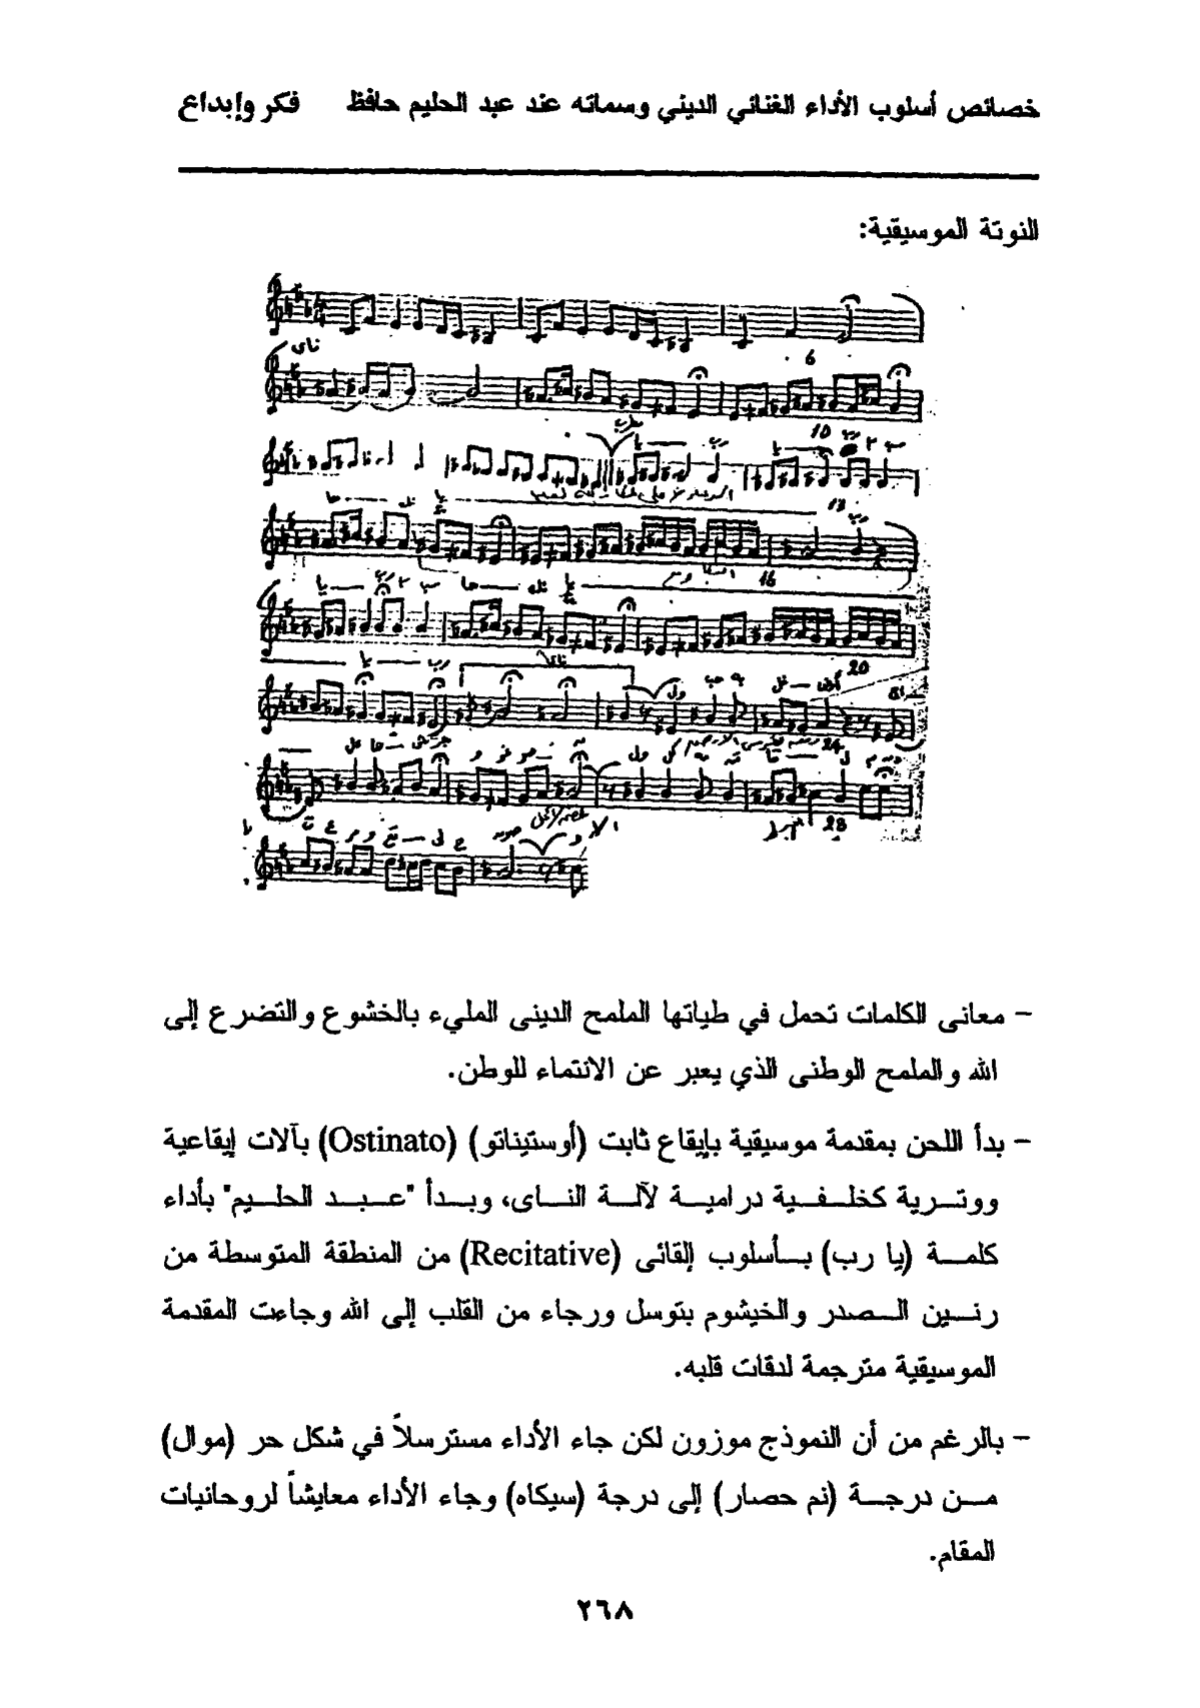 خصائص أسلوب الأداء الغنائي الديني وسماته عند عبد الحليم حافظ فكر وإبداع
النوتة الموسيقية:
ناى
6
يا رب
10
13
16
يا رب
20
24
28
- معانى الكلمات تحمل في طياتها الملمح الدينى المليء بالخشوع والتضرع إلى
الله والملمح الوطنى الذي يعبر عن الانتماء للوطن.
- بدأ اللحن بمقدمة موسيقية بإيقاع ثابت (أوستيناتو) (Ostinato) بآلات إيقاعية
ووترية كخلفية درامية لآلة الناى، وبدأ "عبد الحليم" بأداء
كلمة (يا رب) بأسلوب إلقائى (Recitative) من المنطقة المتوسطة من
رنين الصدر والخيشوم بتوسل ورجاء من القلب إلى الله وجاءت المقدمة
الموسيقية مترجمة لدقات قلبه.
- بالرغم من أن النموذج موزون لكن جاء الأداء مسترسلاً في شكل حر (موال)
من درجة (نم حصار) إلى درجة (سيكاه) وجاء الأداء معايشاً لروحانيات
المقام.
٢٦٨